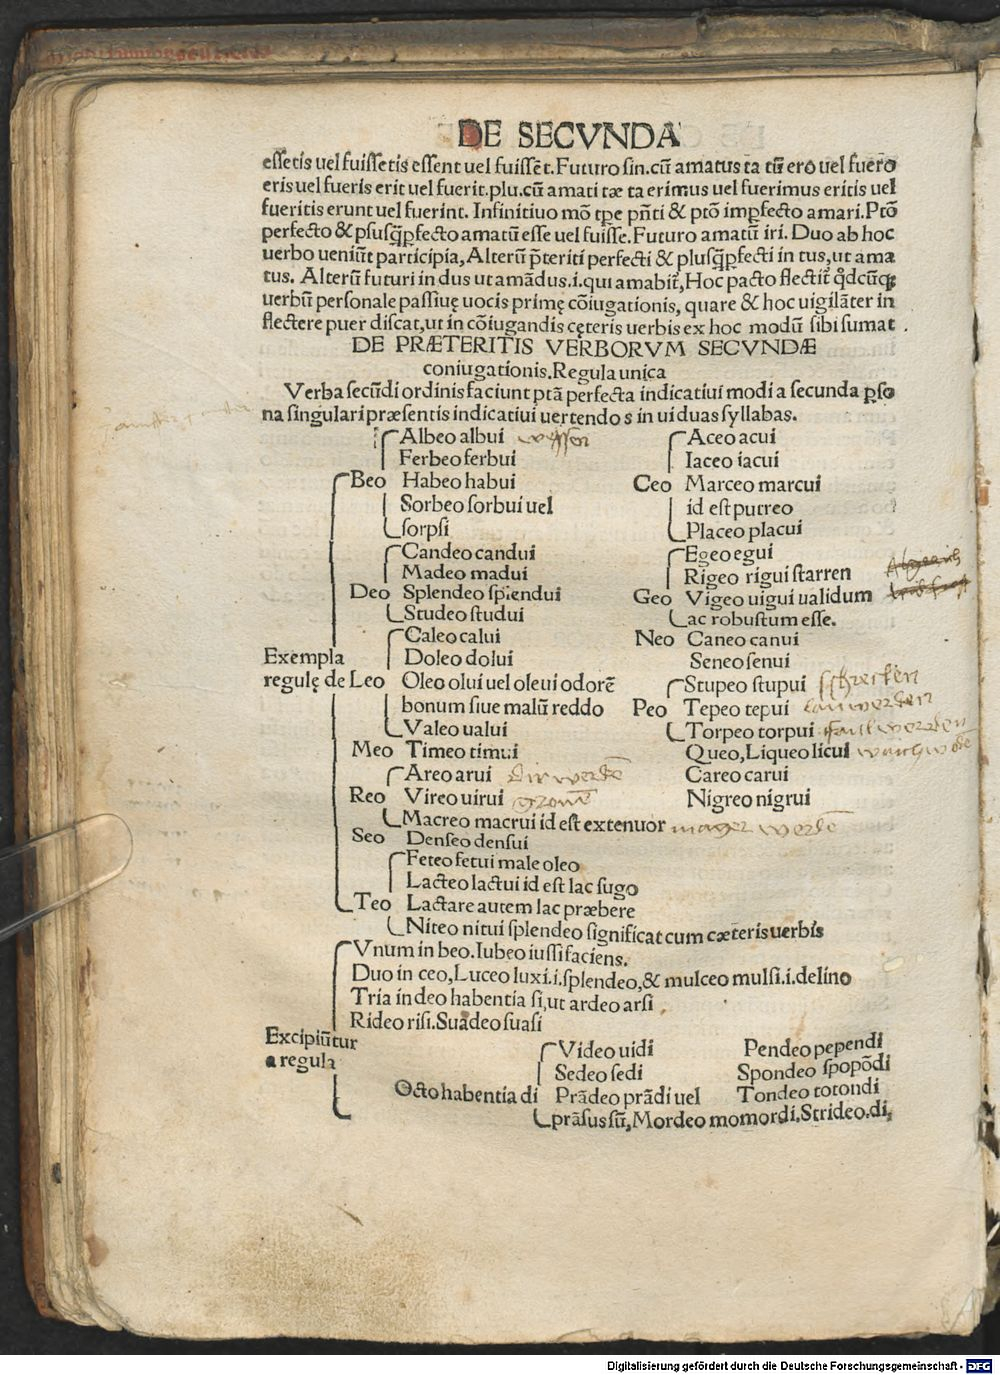 DE SECVNDA
essetis uel fuissetis essent uel fuissēt. Futuro sin. cū amatus ta tū ero uel fuero
eris uel fueris erit uel fuerit. plu. cū amati tæ ta erimus uel fuerimus eritis uel
fueritis erunt uel fuerint. Infinitiuo mō tp̄e pn̄ti & ptō imꝑfecto amari. Ptō
perfecto & plusq̄ꝑfecto amatū esse uel fuisse. Futuro amatū iri. Duo ab hoc
uerbo ueniūt participia, Alterū p̄teriti perfecti & plusq̄ꝑfecti in tus, ut ama
tus. Alterū futuri in dus ut amādus .i. qui amabit̄, Hoc pacto flectit̄ qdcūqꝫ
uerbū personale passiuę uocis primę cōiugationis, quare & hoc uigilāter in
flectere puer discat, ut in cōiugandis cęteris uerbis ex hoc modū sibi sumat.
DE PRÆTERITIS VERBORVM SECVNDÆ
coniugationis. Regula unica
Verba secūdi ordinis faciunt ptā perfecta indicatiui modi a secunda ꝑso
na singulari præsentis indicatiui uertendo s in ui duas syllabas.
Exempla
regulę de
Albeo albui
Ferbeo ferbui
Beo Habeo habui
Sorbeo sorbui uel
sorpsi
Candeo candui
Madeo madui
Deo Splendeo splendui
Studeo studui
Caleo calui
Doleo dolui
Leo Oleo olui uel oleui odorē
bonum siue malū reddo
Valeo ualui
Meo Timeo timui
Areo arui
Reo Vireo uirui
Macreo macrui id est extenuor mager werdē
Seo Denseo densui
Feteo fetui male oleo
Lacteo lactui id est lac sugo
Teo Lactare autem lac præbere
Niteo nitui splendeo significat cum cæteris uerbis
Aceo acui
Iaceo iacui
Ceo Marceo marcui
id est putreo
Placeo placui
Egeo egui
Rigeo rigui starren
Geo Vigeo uigui ualidum
ac robustum esse.
Neo Caneo canui
Seneo senui
Stupeo stupui schrecken
Peo Tepeo tepui
Torpeo torpui faul werden
Queo, Liqueo licui
Careo carui
Nigreo nigrui
Excipiūtur
a regula
Vnum in beo. Iubeo iussi faciens.
Duo in ceo, Luceo luxi .i. splendeo, & mulceo mulsi .i. delino
Tria in deo habentia si, ut ardeo arsi.
Rideo risi. Suadeo suasi
Octo habentia di
Video uidi Pendeo pependi
Sedeo sedi Spondeo spopōdi
Prādeo prādi uel Tondeo totondi
prāsus sū, Mordeo momordi. Strideo. di,
Digitalisierung gefördert durch die Deutsche Forschungsgemeinschaft - DFG